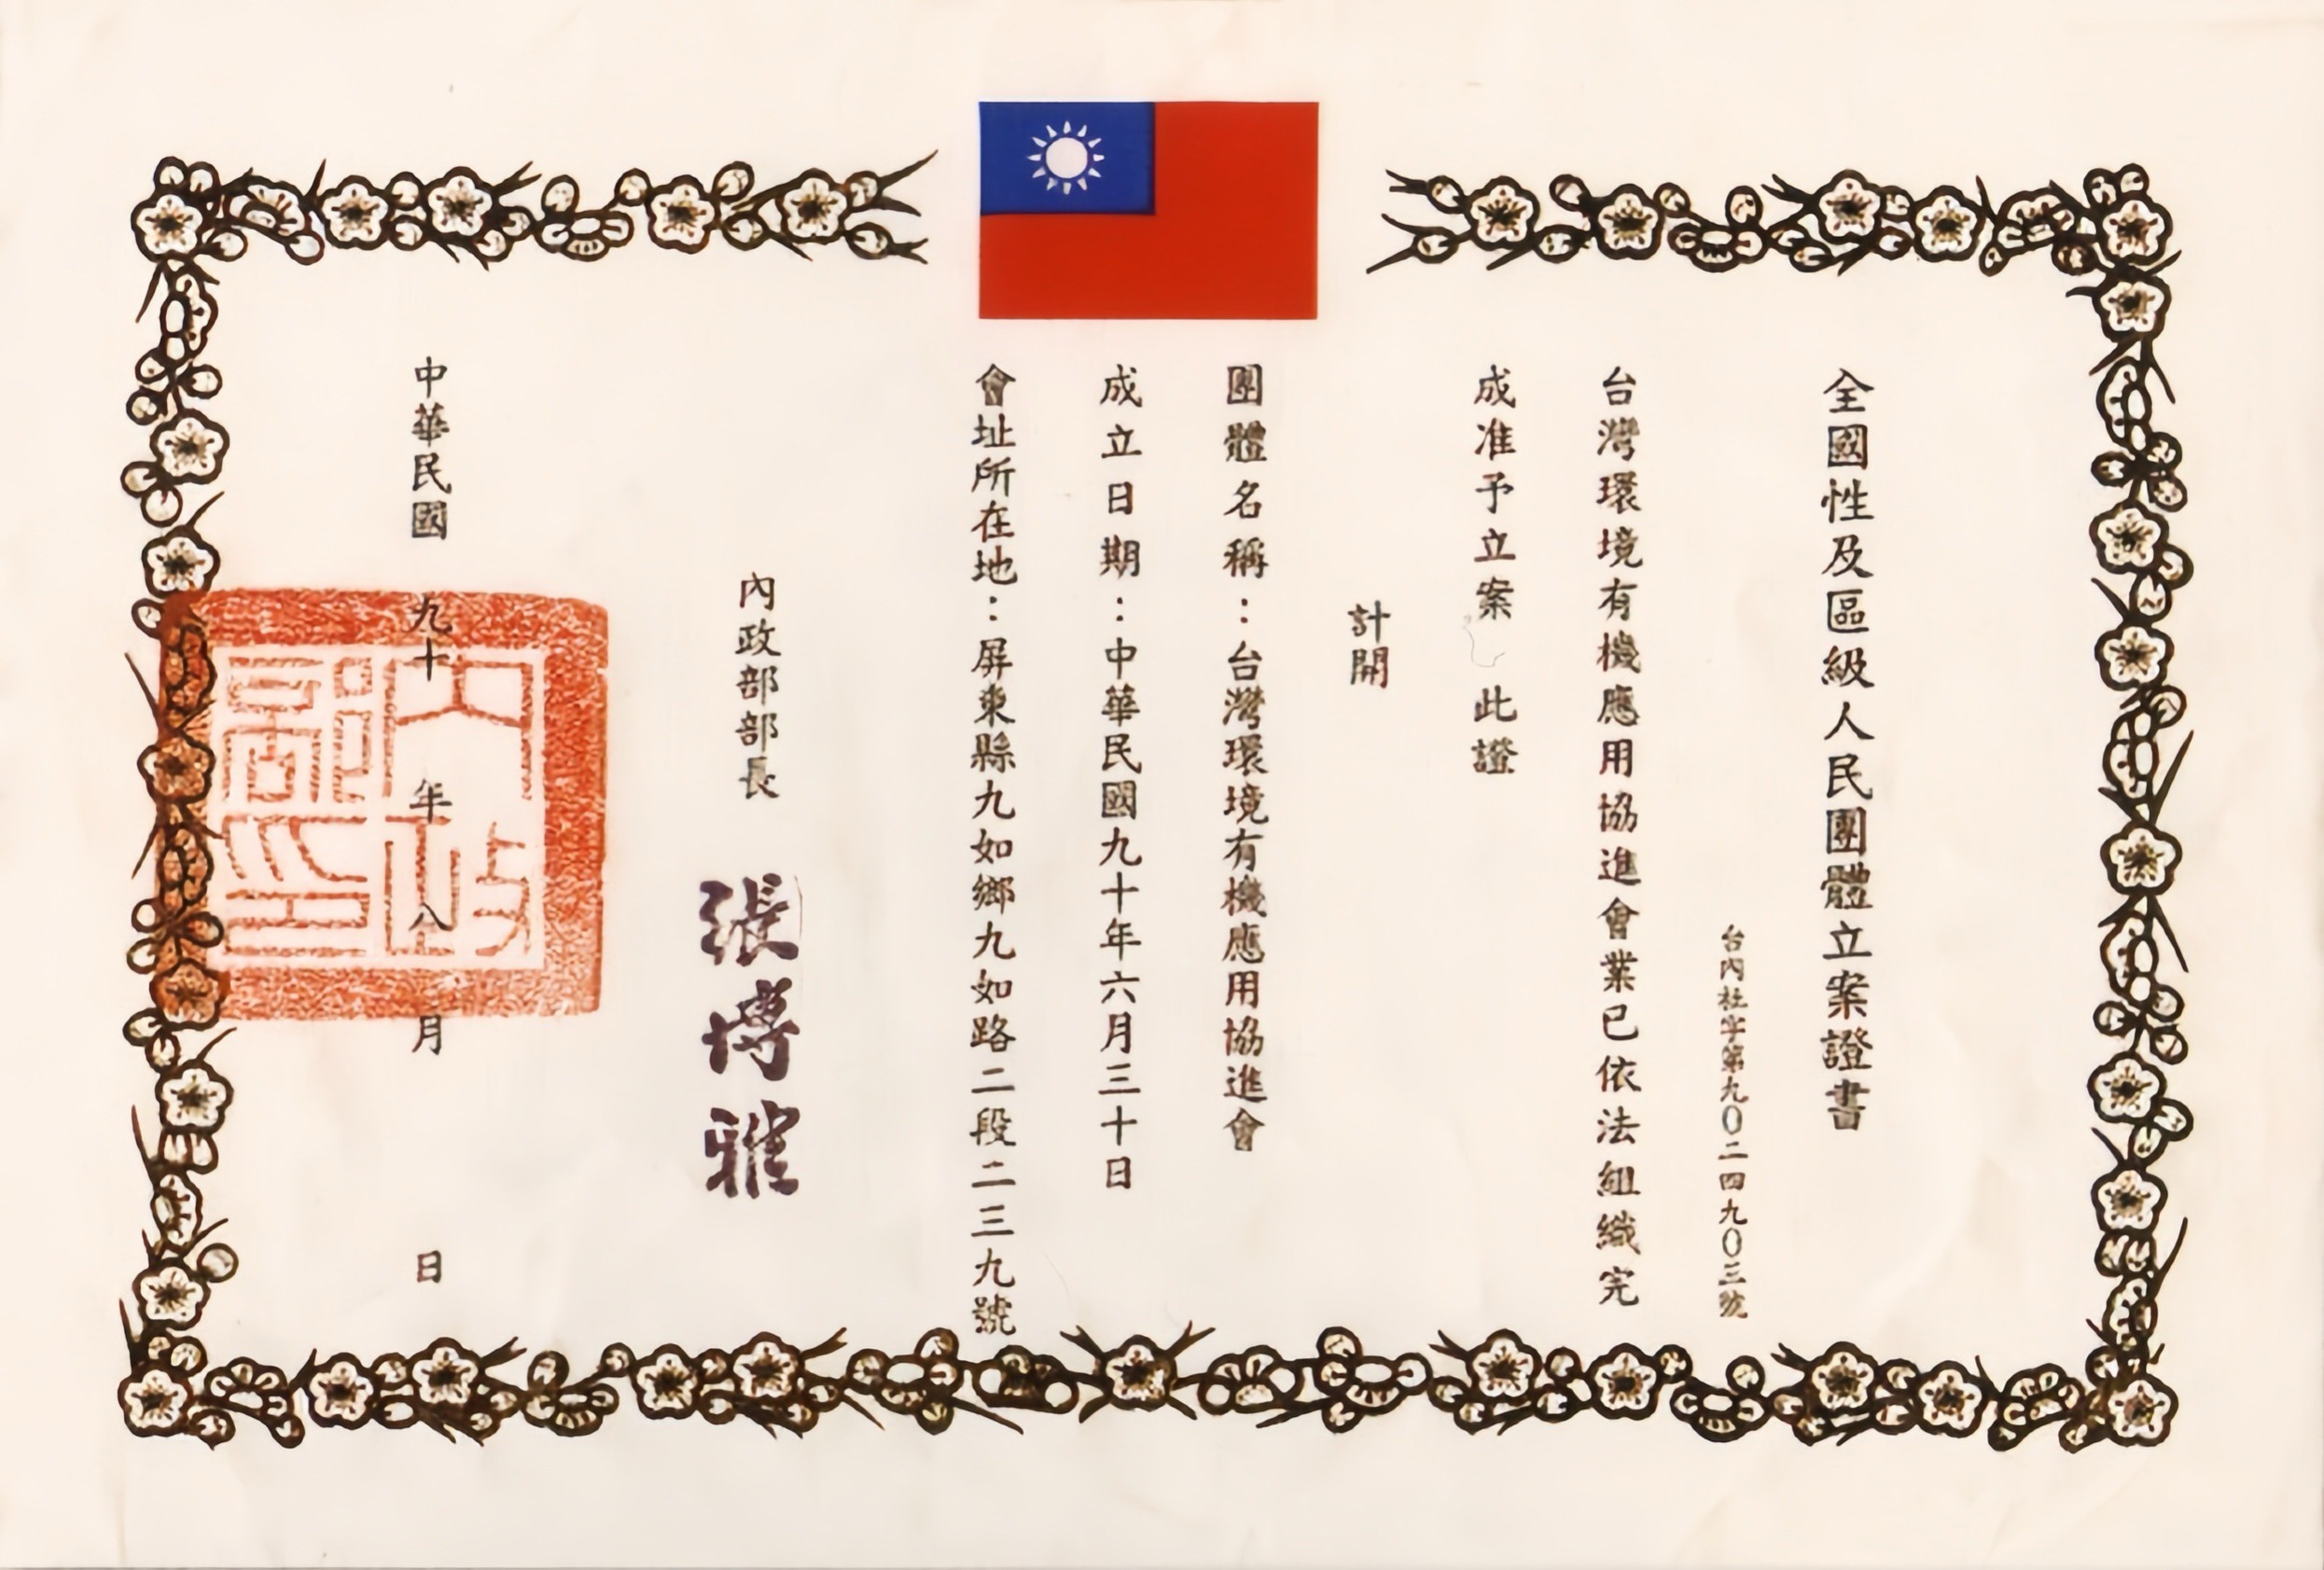 全國性及區級人民團體立案證書
台內社字第九〇二四九〇三號
台灣環境有機應用協進會業已依法組織完
成准予立案 此證
計開
團體名稱：台灣環境有機應用協進會
成立日期：中華民國九十年六月三十日
會址所在地：屏東縣九如鄉九如路二段二三九號
內政部部長 張博雅
中華民國 九十 年 八 月 日
內政部印